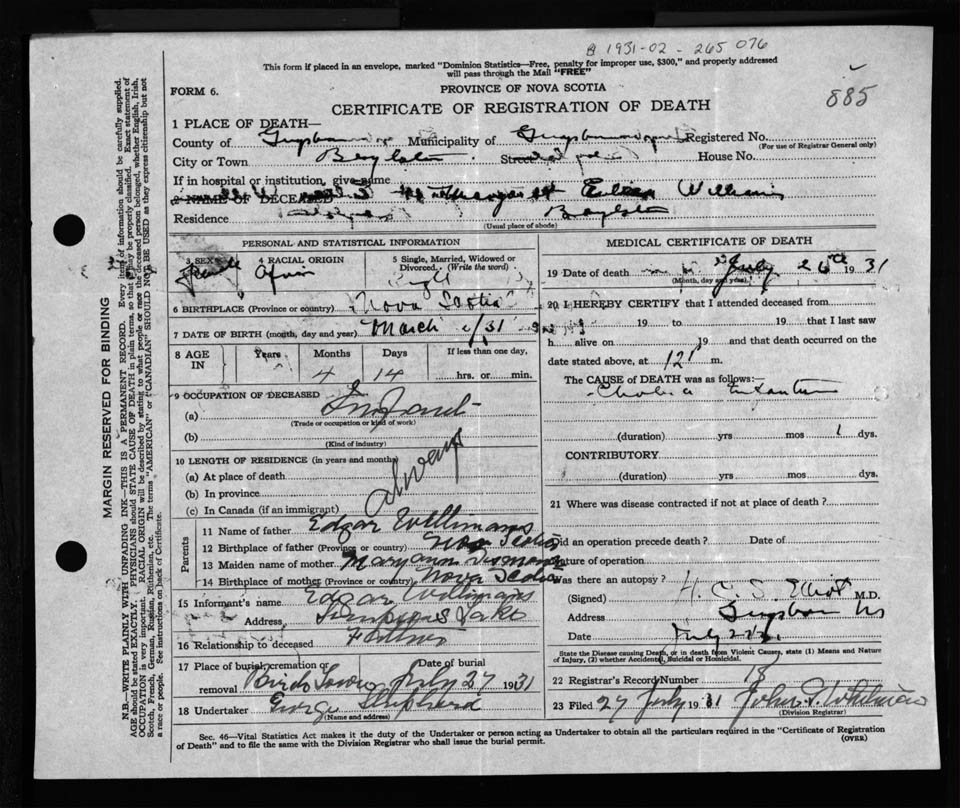 B 1931-02-265 076
This form if placed in an envelope, marked "Dominion Statistics—Free, penalty for improper use, $300," and properly addressed
will pass through the Mail "FREE"
885
FORM 6.
PROVINCE OF NOVA SCOTIA
CERTIFICATE OF REGISTRATION OF DEATH
MARGIN RESERVED FOR BINDING
N.B.—WRITE PLAINLY WITH UNFADING INK—THIS IS A PERMANENT RECORD. Every item of information should be carefully supplied.
AGE should be stated EXACTLY. PHYSICIANS should STATE CAUSE OF DEATH in plain terms, so that it may be properly classified. Exact statement of
OCCUPATION is very important. RACIAL ORIGIN will be described by stating to what people or race the deceased person belonged, whether English, Irish,
Scotch, French, German, Russian, Ruthenian, etc. The terms "AMERICAN" or "CANADIAN" SHOULD NOT BE USED as they express citizenship but not
a race or people. See instructions on back of Certificate.
1 PLACE OF DEATH—
County of Municipality of Registered No.
(For use of Registrar General only)
City or Town Boylston Street House No.
If in hospital or institution, give name
2 NAME OF DECEASED Margaret Eileen Williams
Residence Boylston
(Usual place of abode)
PERSONAL AND STATISTICAL INFORMATION
3 SEX 4 RACIAL ORIGIN 5 Single, Married, Widowed or
Divorced. (Write the word)
Female
6 BIRTHPLACE (Province or country) Nova Scotia
7 DATE OF BIRTH (month, day and year) March /31
8 AGE IN Years Months Days If less than one day,
4 14 hrs. or min.
9 OCCUPATION OF DECEASED
(a) Infant
(Trade or occupation or kind of work)
(b)
(Kind of industry)
10 LENGTH OF RESIDENCE (in years and months)
(a) At place of death
(b) In province always
(c) In Canada (if an immigrant)
Parents
11 Name of father Edgar Willimans
12 Birthplace of father (Province or country) Nova Scotia
13 Maiden name of mother Mary Ann
14 Birthplace of mother (Province or country) Nova Scotia
15 Informant's name Edgar Willimans
Address
16 Relationship to deceased Father
17 Place of burial, cremation or Date of burial
removal July 27 1931
18 Undertaker George Shephard
(Name and address)
MEDICAL CERTIFICATE OF DEATH
19 Date of death July 26th 1931
(Month, day and year)
20 I HEREBY CERTIFY that I attended deceased from
19 to 19 that I last saw
h alive on 19 and that death occurred on the
date stated above, at 12 m.
The CAUSE OF DEATH was as follows:—
Cholera Infantum
(duration) yrs mos 1 dys.
CONTRIBUTORY
(duration) yrs mos dys.
21 Where was disease contracted if not at place of death?
Did an operation precede death? Date of
Nature of operation
Was there an autopsy?
(Signed) H. C. S. Elliot M.D.
Address Guysboro NS
Date July
State the Disease causing Death, or in death from Violent Causes, state (1) Means and Nature
of Injury, (2) whether Accidental, Suicidal or Homicidal.
22 Registrar's Record Number
23 Filed 27 July 1931 John
(Division Registrar)
Sec. 46—Vital Statistics Act makes it the duty of the Undertaker or person acting as Undertaker to obtain all the particulars required in the "Certificate of Registration
of Death" and to file the same with the Division Registrar who shall issue the burial permit.
(OVER)